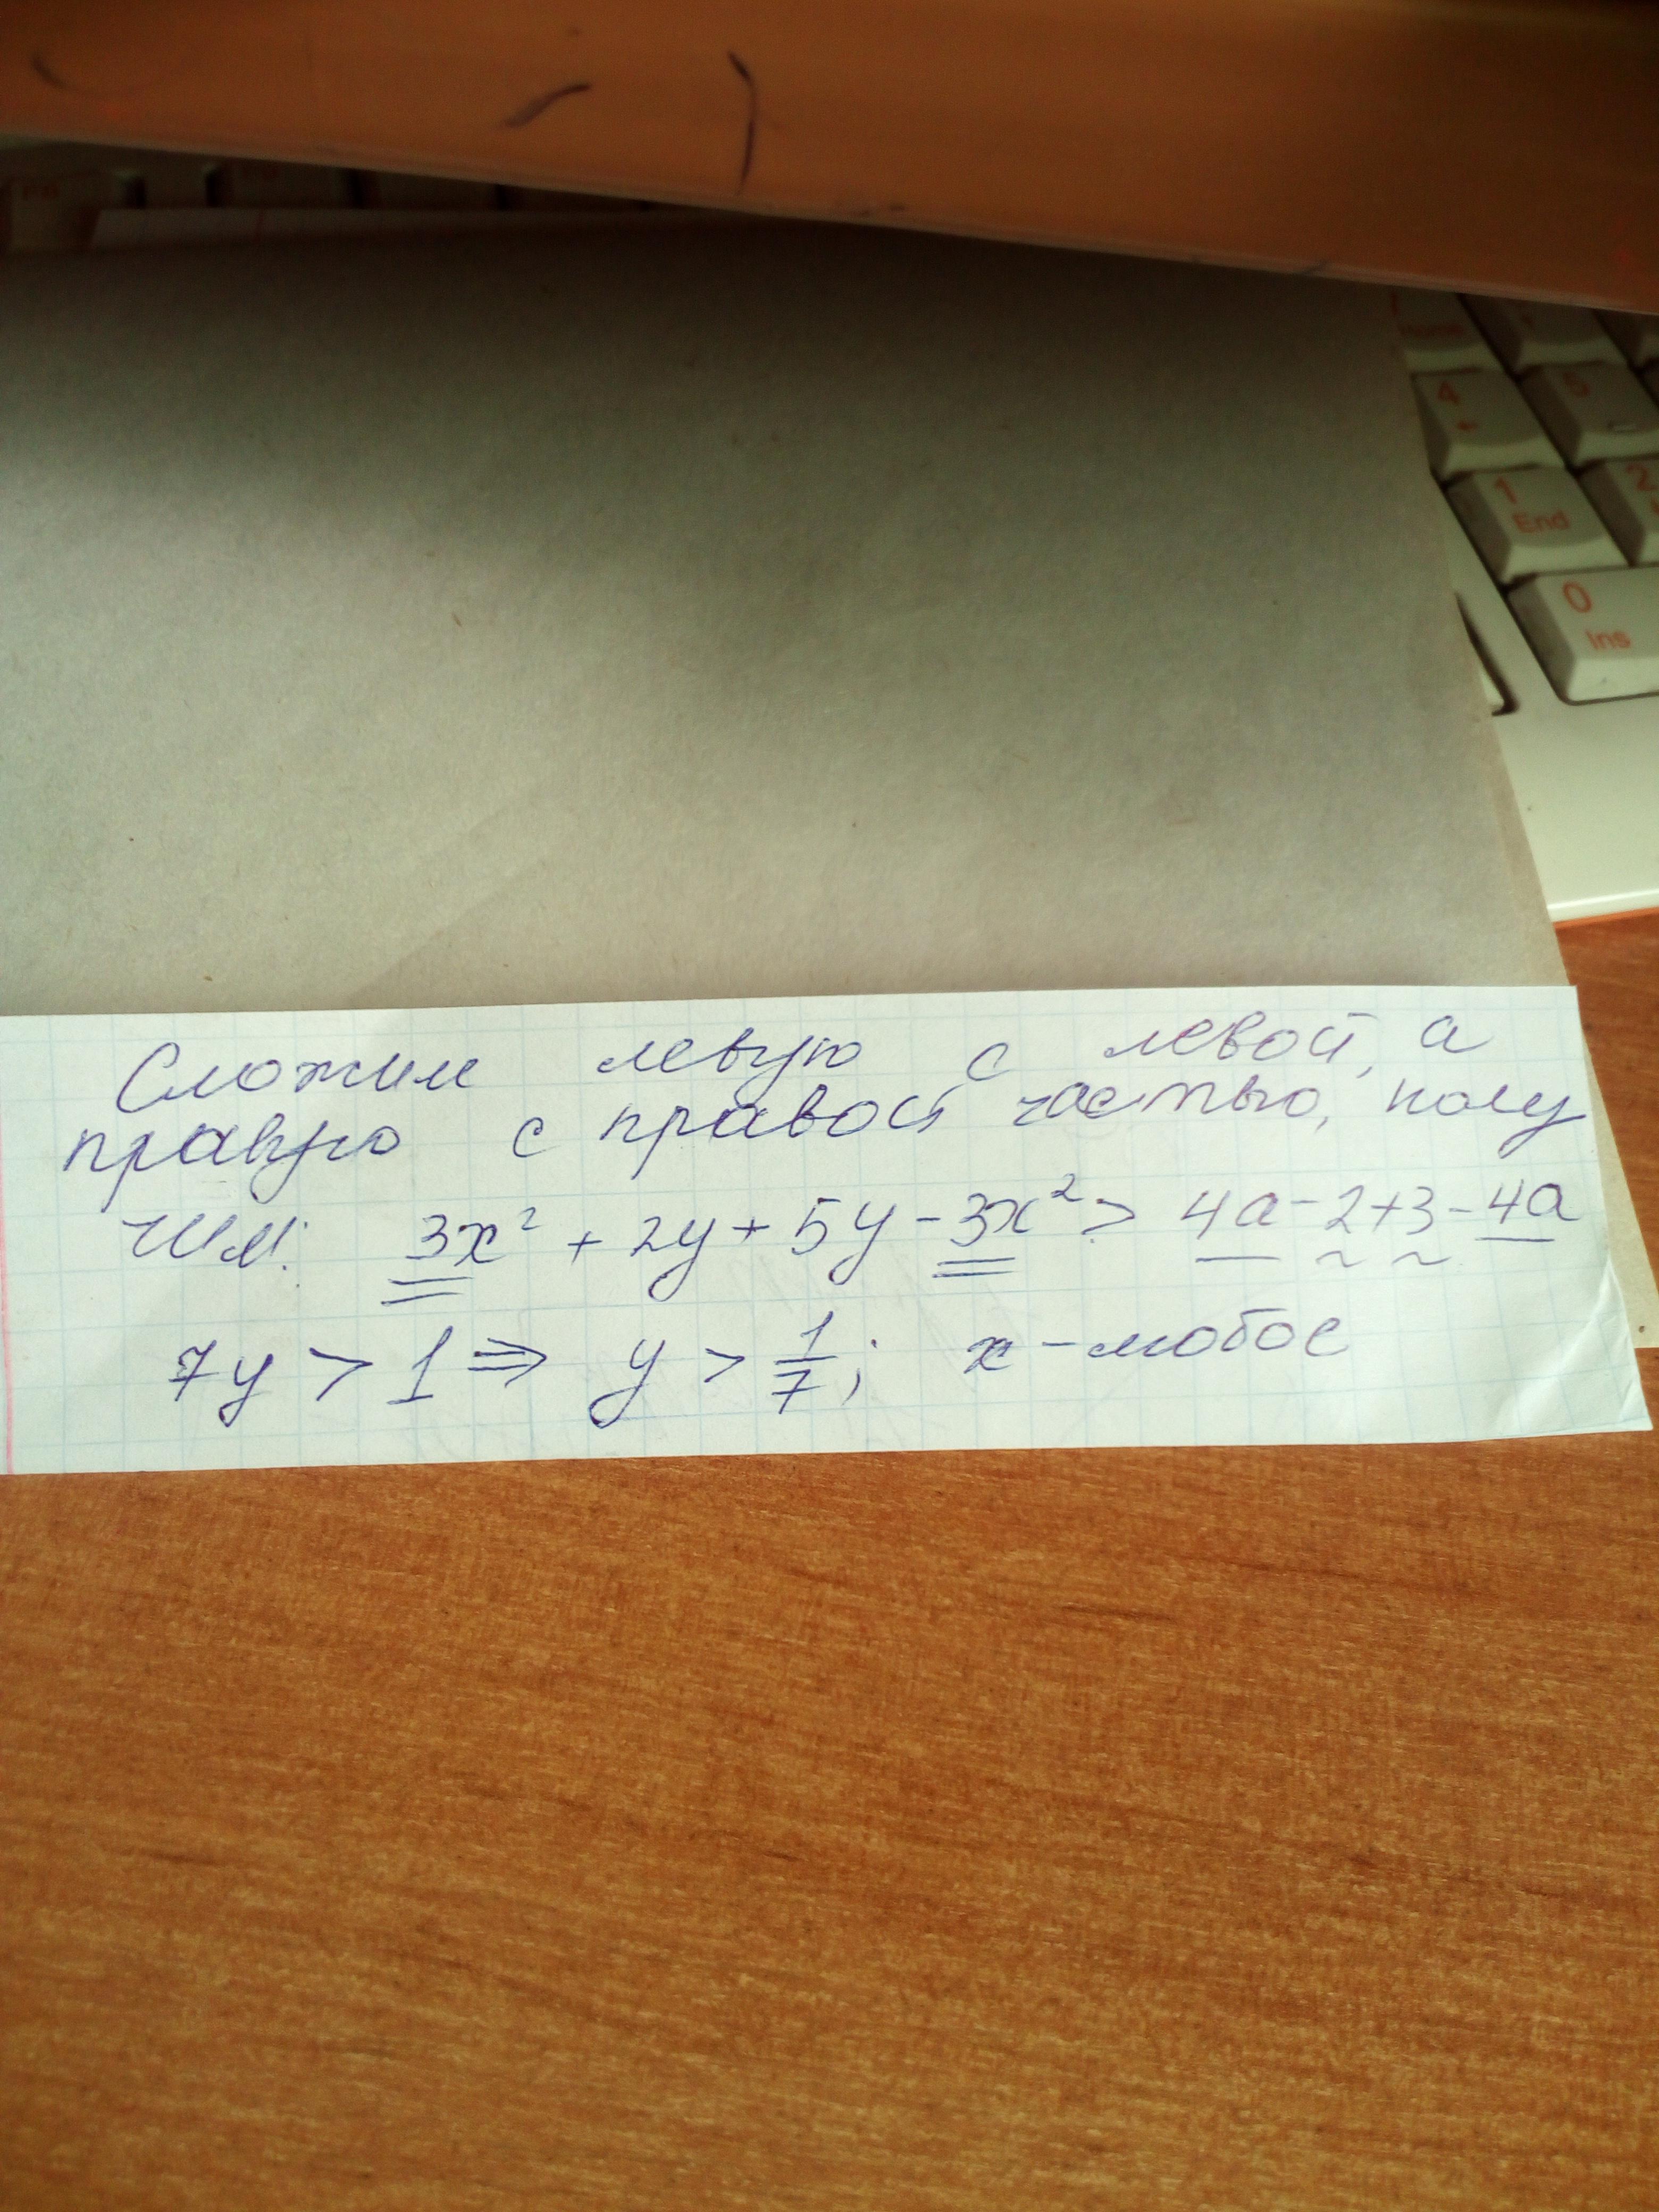 4
5
1
End
2
0
Ins
Сложим левую с левой, а
правую с правой частью, полу
чим: 3x² + 2y + 5y - 3x² > 4a - 2 + 3 - 4a
7y > 1 ⇒ y > 1/7; x - любое